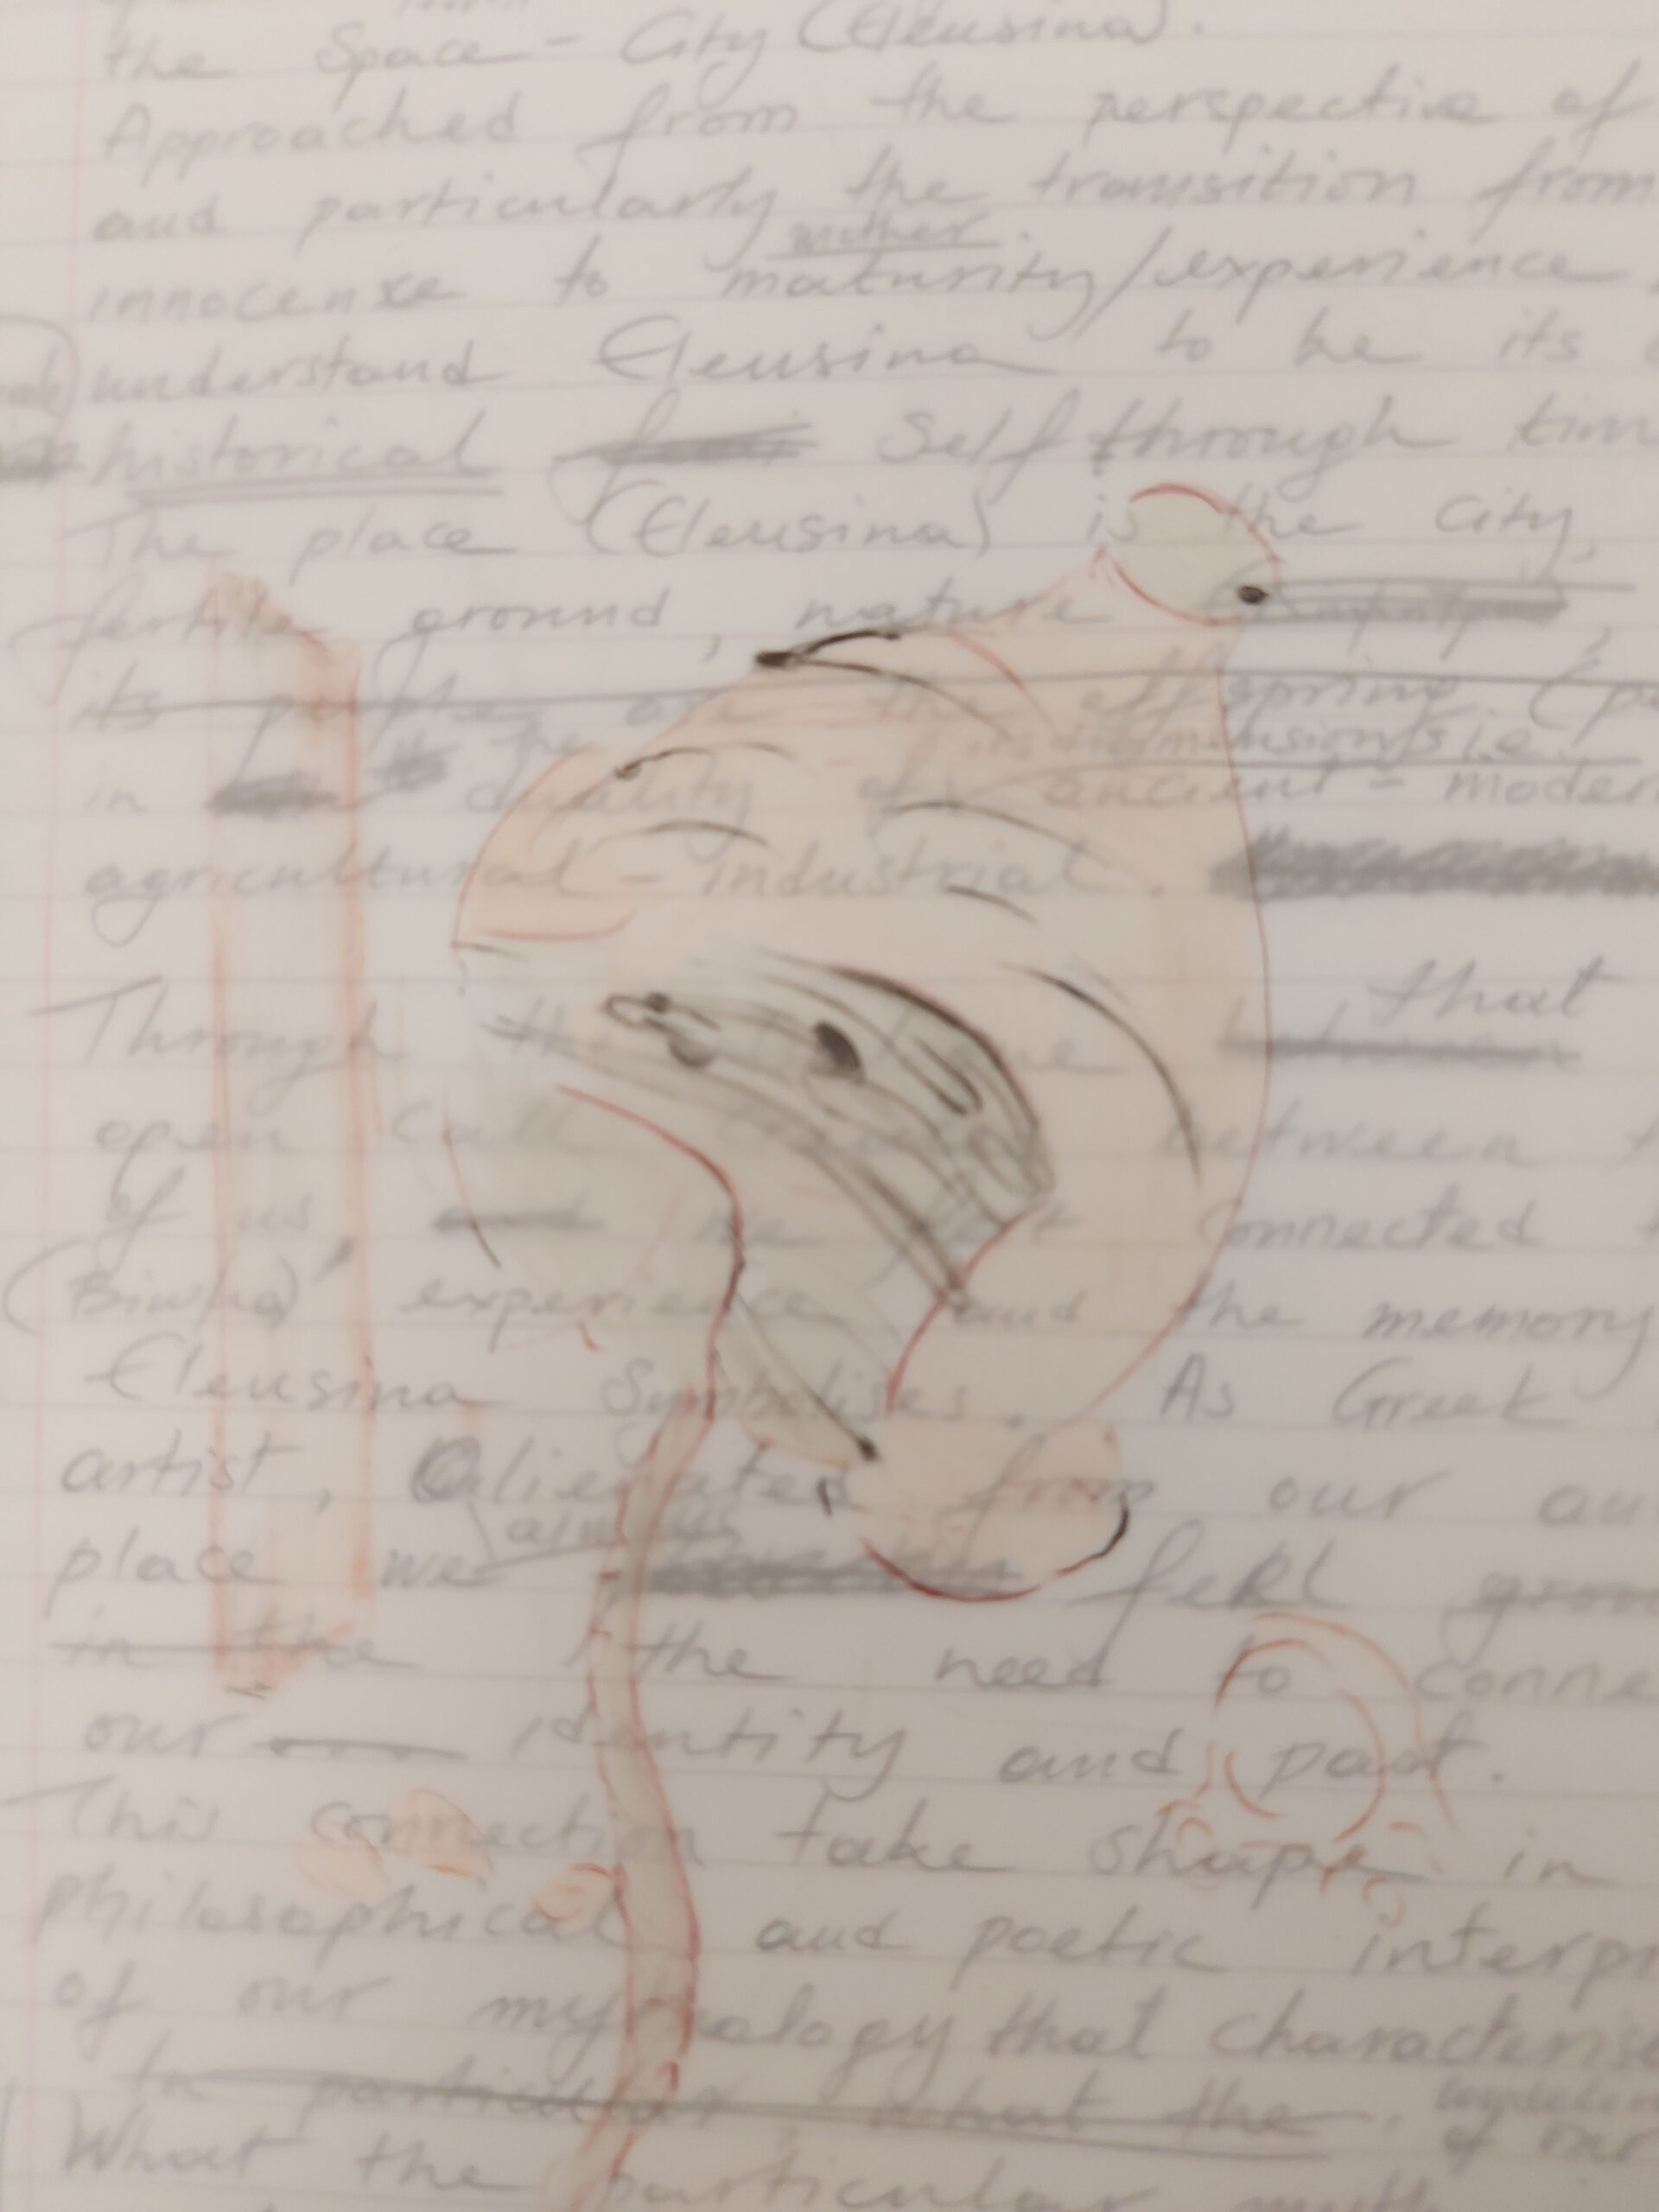 the Space - City (Eleusina).
Approached from the perspective of
and particularly the transition from
mother
innocence to maturity/experience
understand Eleusina to be its
historical Self through tim
The place (Eleusina) is the City,
fertile ground, nature ,
its people are the offspring (pe
its dimensions i.e.
in the duality of ancient - modern
agricultural - industrial.
that
Through the
open call between t
of us, connected t
experience and the memory
Eleusina Symbolises. As Greek
artist, alienated from our au
always
place we feel
in the the need to conne
our identity and past.
This connection take shape in
philosophical and poetic interpr
of our mythology that characterise
In particular, what the
of our
What the particular myth